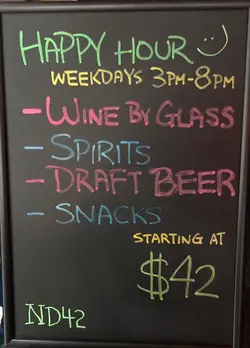 HAPPY HOUR
WEEKDAYS 3PM-8PM
- WINE BY GLASS
- SPIRITS
- DRAFT BEER
- SNACKS
STARTING AT
$42
ND42